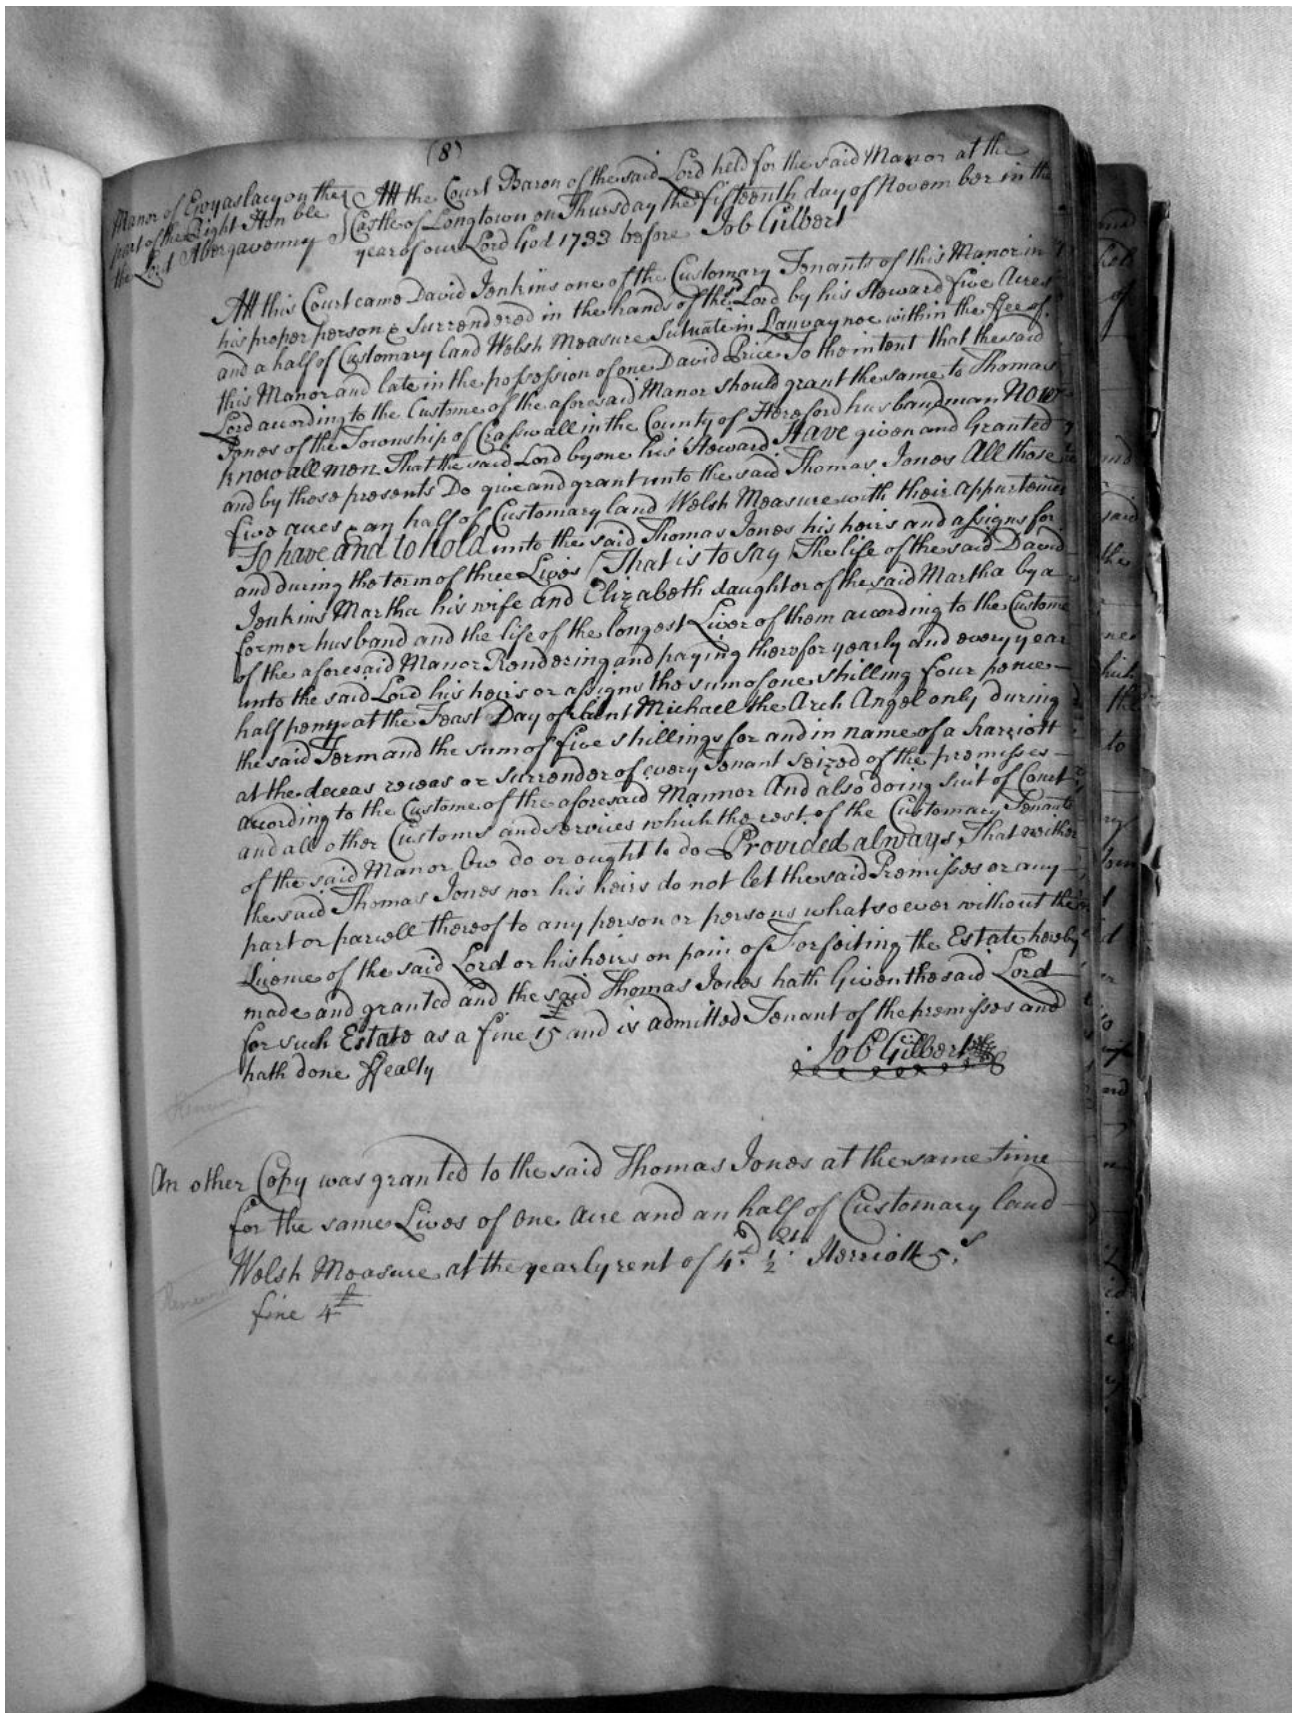 (8)
Manor of Ewyaslacy on the
part of the Right Hon ble
the Lord Abergavenny
Att the Court Baron of the said Lord held for the said Manor at the
Castle of Longtown on Thursday the fifteenth day of November in the
year of our Lord God 1733 before Job Gilbert
Att this Court came David Jenkins one of the Customary Tenants of this Manor in
his proper person & Surrendered in the hands of the sd Lord by his Steward five Acres
and a half of Customary land Welsh Measure Scituate in Lanvaynoe within the ffee of
this Manor and late in the possession of one David Price To the intent that the said
Lord according to the Custome of the aforesaid Manor should grant the same to Thomas
Jones of the Township of Crasswall in the County of Hereford husbandman Now
know all men That the said Lord by one his Steward Have given and Granted
and by those presents Do give and grant unto the said Thomas Jones All those
five acres & an half of Customary land Welsh Measure with their appurtennces
To have and to hold unto the said Thomas Jones his heirs and assigns for
and during the term of three Lives (That is to say) The life of the said David
Jenkins Martha his wife and Elizabeth daughter of the said Martha by a
former husband and the life of the longest Liver of them according to the Custome
of the aforesaid Manor Rendering and paying therefor yearly and every year
unto the said Lord his heirs or assigns the sum of one shilling four pence
half peny at the Feast Day of Saint Michael the Arch Angel only during
the said Term and the sum of five shillings for and in name of a harriott
at the deceas receas or surrender of every Tenant seized of the premisses
according to the Custome of the aforesaid Mannor And also doing suit of Court
and all other Customs and services which the rest of the Customary Tenants
of the said Manor Ow do or ought to do Provided always That neither
the said Thomas Jones nor his heirs do not let the said Premisses or any
part or parcell thereof to any person or persons whatsoever without the
Licence of the said Lord or his heirs on pain of Forfeiting the Estate hereby
made and granted and the said Thomas Jones hath Given the said Lord
for such Estate as a fine 15£ and is admitted Tenant of the premisses and
hath done ffealty
Job Gilbert
An other Copy was granted to the said Thomas Jones at the same time
for the same Lives of One Acre and an half of Customary land
Welsh Measure at the yearly rent of 4d. ½ Herriott 5s
fine 4£